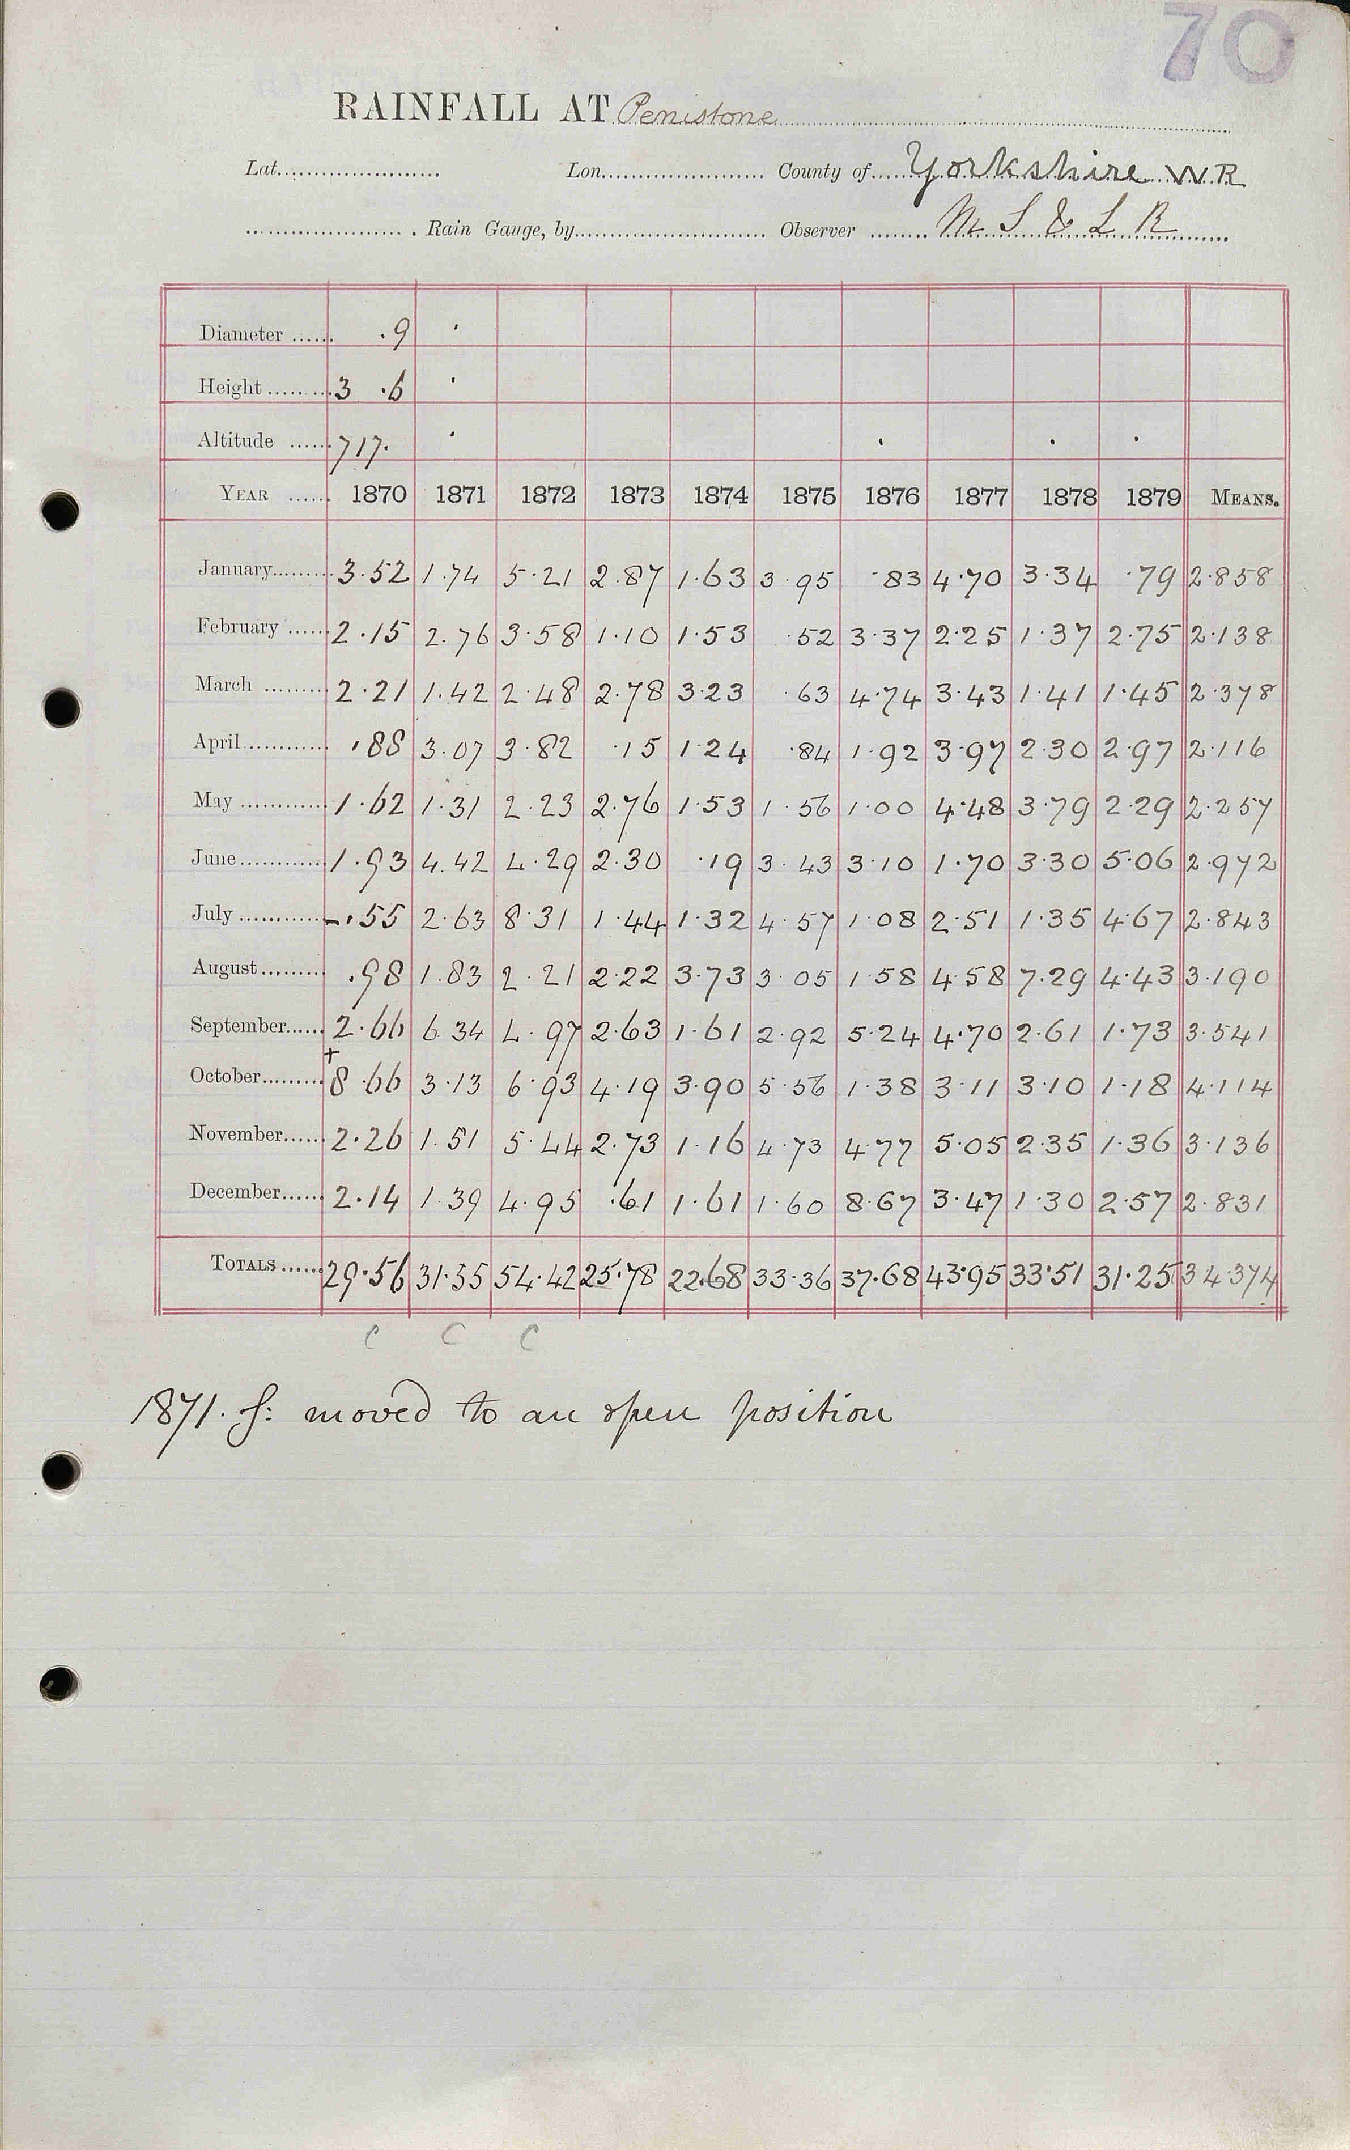 70
RAINFALL AT Penistone
Lat. Lon. County of Yorkshire W.R
Rain Gauge, by Observer M S & L R
Diameter .9
Height 3 .6
Altitude 717.
YEAR 1870 1871 1872 1873 1874 1875 1876 1877 1878 1879 MEANS.
January 3.52 1.74 5.21 2.87 1.63 3.95 .83 4.70 3.34 .79 2.858
February 2.15 2.76 3.58 1.10 1.53 .52 3.37 2.25 1.37 2.75 2.138
March 2.21 1.42 2.48 2.78 3.23 .63 4.74 3.43 1.41 1.45 2.378
April .88 3.07 3.82 .15 1.24 .84 1.92 3.97 2.30 2.97 2.116
May 1.62 1.31 2.23 2.76 1.53 1.56 1.00 4.48 3.79 2.29 2.257
June 1.93 4.42 4.29 2.30 .19 3.43 3.10 1.70 3.30 5.06 2.972
July -.55 2.63 8.31 1.44 1.32 4.57 1.08 2.51 1.35 4.67 2.843
August .98 1.83 2.21 2.22 3.73 3.05 1.58 4.58 7.29 4.43 3.190
September 2.66 6.34 4.97 2.63 1.61 2.92 5.24 4.70 2.61 1.73 3.541
October +8.66 3.13 6.93 4.19 3.90 5.56 1.38 3.11 3.10 1.18 4.114
November 2.26 1.51 5.44 2.73 1.16 4.73 4.77 5.05 2.35 1.36 3.136
December 2.14 1.39 4.95 .61 1.61 1.60 8.67 3.47 1.30 2.57 2.831
TOTALS 29.56 31.55 54.42 25.78 22.68 33.36 37.68 43.95 33.51 31.25 34.374
C C C
1871. moved to an open position